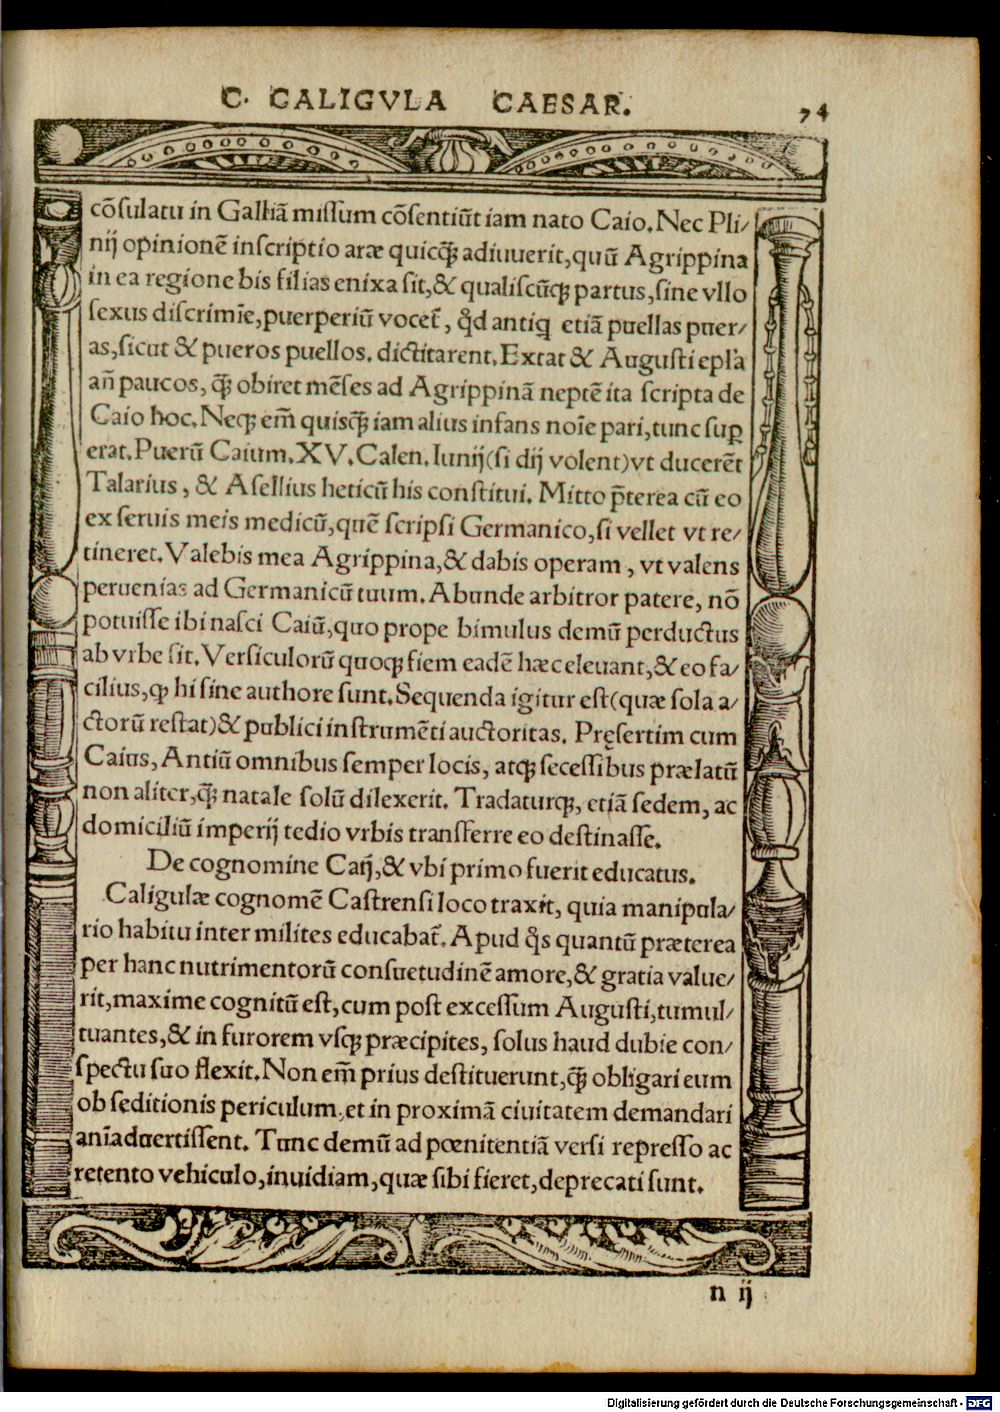 C. CALIGVLA CAESAR. 74
cōsulatu in Galliā missum cōsentiūt iam nato Caio. Nec Pli/
nij opinionē inscriptio aræ quicq̃ adiuuerit, quū Agrippina
in ea regione bis filias enixa sit, & qualiscūq; partus, sine vllo
sexus discrimīe, puerperiū vocet̃, q̃d antiq̃ etiā puellas puer/
as, sicut & pueros puellos. dictitarent. Extat & Augusti epl̃a
añ paucos, q̃ obiret mēses ad Agrippinā neptē ita scripta de
Caio hoc. Neq; em̃ quisq̃ iam alius infans noīe pari, tunc suꝑ
erat. Puerū Caium. XV. Calen. Iunij (si dij volent) vt ducerēt
Talarius, & Asellius heticū his constitui. Mitto p̄terea cū eo
ex seruis meis medicū, quē scripsi Germanico, si vellet vt re/
tineret. Valebis mea Agrippina, & dabis operam, vt valens
peruenias ad Germanicū tuum. Abunde arbitror patere, nō
potuisse ibi nasci Caiū, quo prope bimulus demū perductus
ab vrbe sit. Versiculorū quoq; fiem eadē hæc eleuant, & eo fa/
cilius, ꝙ hi sine authore sunt. Sequenda igitur est (quæ sola a/
ctorū restat) & publici instrumēti auctoritas. Pręsertim cum
Caius, Antiū omnibus semper locis, atq; secessibus prælatū
non aliter, q̃ natale solū dilexerit. Tradaturq;, etiā sedem, ac
domiciliū imperij tedio vrbis transferre eo destinasse.
De cognomine Caij, & vbi primo fuerit educatus.
Caligulæ cognomē Castrensi loco traxit, quia manipula/
rio habitu inter milites educabat̃. Apud q̃s quantū præterea
per hanc nutrimentorū consuetudinē amore, & gratia value/
rit, maxime cognitū est, cum post excessum Augusti, tumul/
tuantes, & in furorem vsq; præcipites, solus haud dubie con/
spectu suo flexit. Non em̃ prius destituerunt, q̃ obligari eum
ob seditionis periculum, et in proximā ciuitatem demandari
anīaduertissent. Tunc demū ad pœnitentiā versi represso ac
retento vehiculo, inuidiam, quæ sibi fieret, deprecati sunt.
n ij
Digitalisierung gefördert durch die Deutsche Forschungsgemeinschaft - DFG